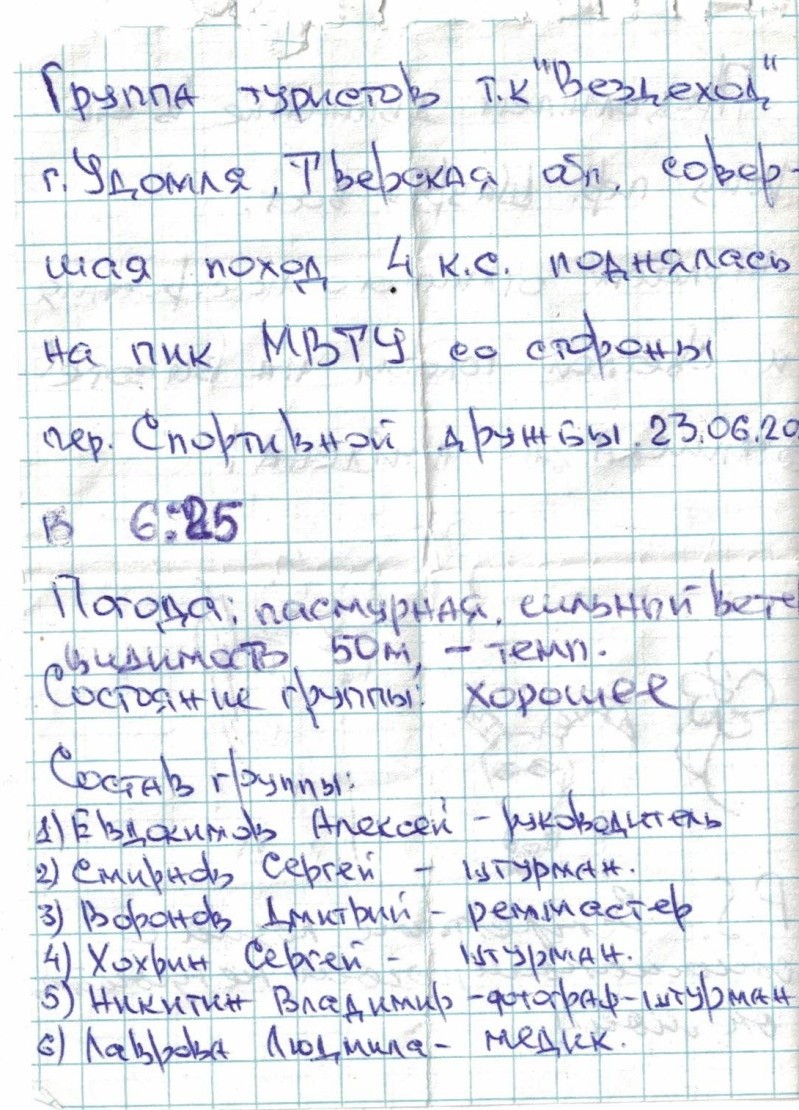 Группа туристов т.к "Вездеход"
г. Удомля, Тверская обл. совер-
шая поход 4 к.с. поднялась
на пик МВТУ со стороны
пер. Спортивной дружбы. 23.06.20
В 6:25
Погода: пасмурная, сильный вете
видимость 50м, - темп.
Состояние группы: хорошее
Состав группы:
1) Евдокимов Алексей - руководитель
2) Смирнов Сергей - штурман.
3) Воронов Дмитрий - реммастер
4) Хохрин Сергей - штурман.
5) Никитин Владимир - фотограф-штурман
6) Лаврова Людмила - медик.